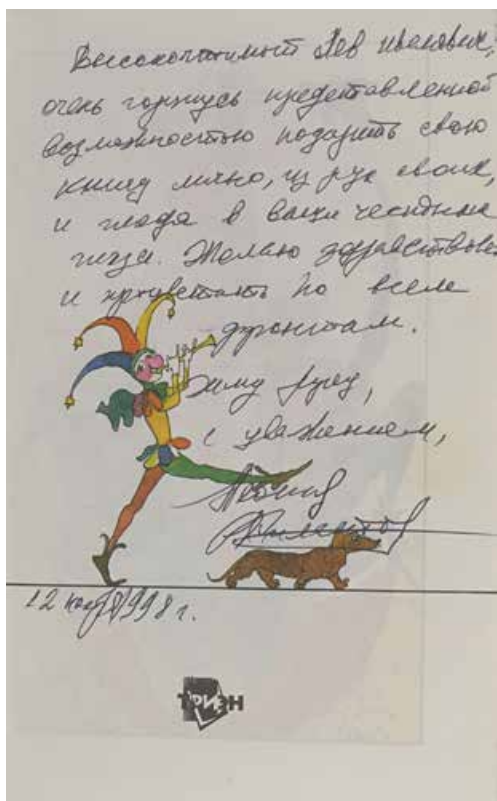 Высокочтимый Лев Иванович,
очень горжусь представленной
возможностью подарить свою
книгу лично, из рук своих,
и глядя в ваши честные
глаза. Желаю здравствовать
и процветать по всем
фронтам.
Жму руку,
с уважением,
Леонид
12 1998 г.
ТРИЭН